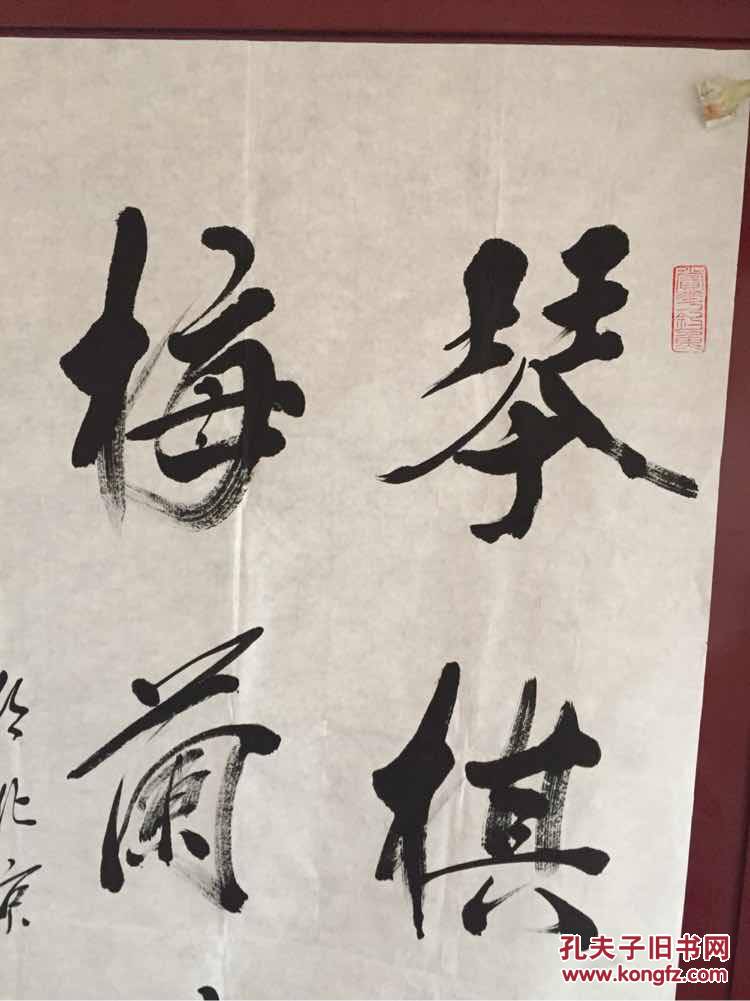 琴棋
梅蘭
於北京
孔夫子旧书网
www.kongfz.com